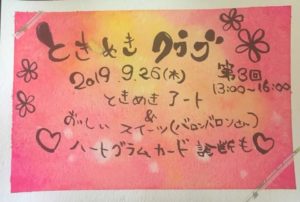 ときめき クラブ
2019 9.26(木) 第3回
13:00~16:00
ときめき アート
&
おいしい スイーツ(バロンバロンさん)
ハートグラムカード 診断も